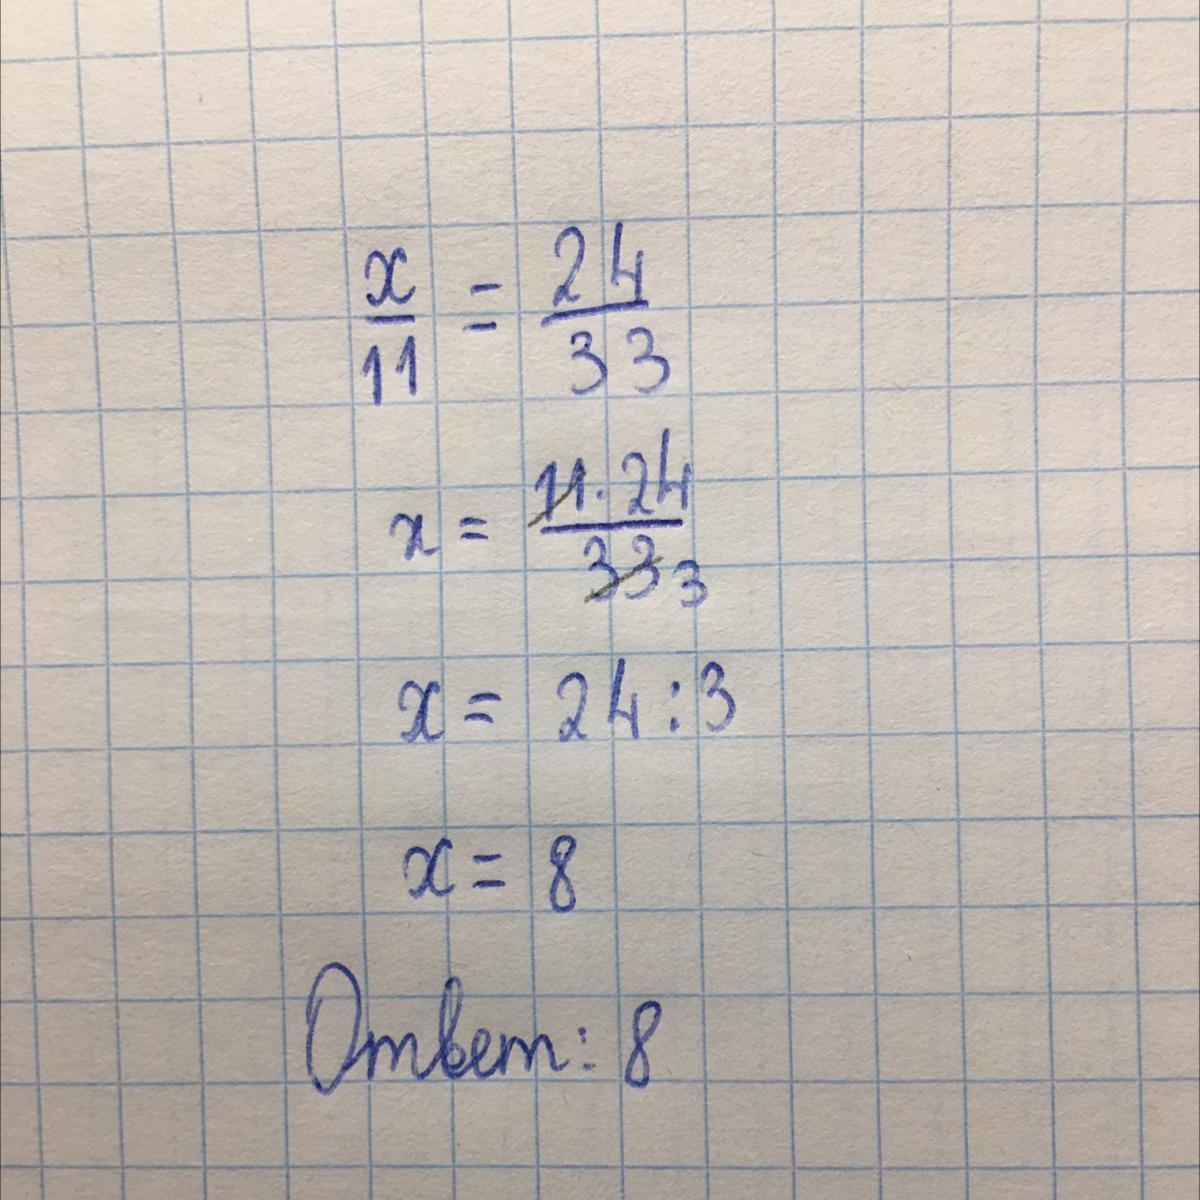 x/11 = 24/33
x = 11·24/33 3
x = 24:3
x = 8
Ответ: 8